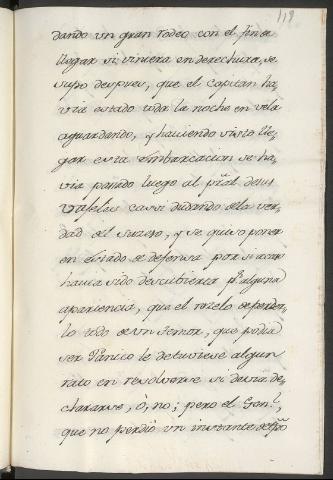 119
dando un gran rodeo con el fin de
llegar si viniera en derechura, se
supo despues, que el capitan ha,
via estado toda la noche en vela
aguardando, y haciendo visto lle,
gar esta Embarcacion se ha,
via parado luego al
casi dudando de la ver,
dad del suceso, y se quiso poner
en Estado de defensa por si acaso
havia sido descubierta pr. alguna
apariencia, que el rezelo de perder,
lo todo de un temor, que podia
ser Panico le detuviese algun
rato en resolverse si devia de,
clararse, ó, no; pero el Genl.,
que no perdió un instante